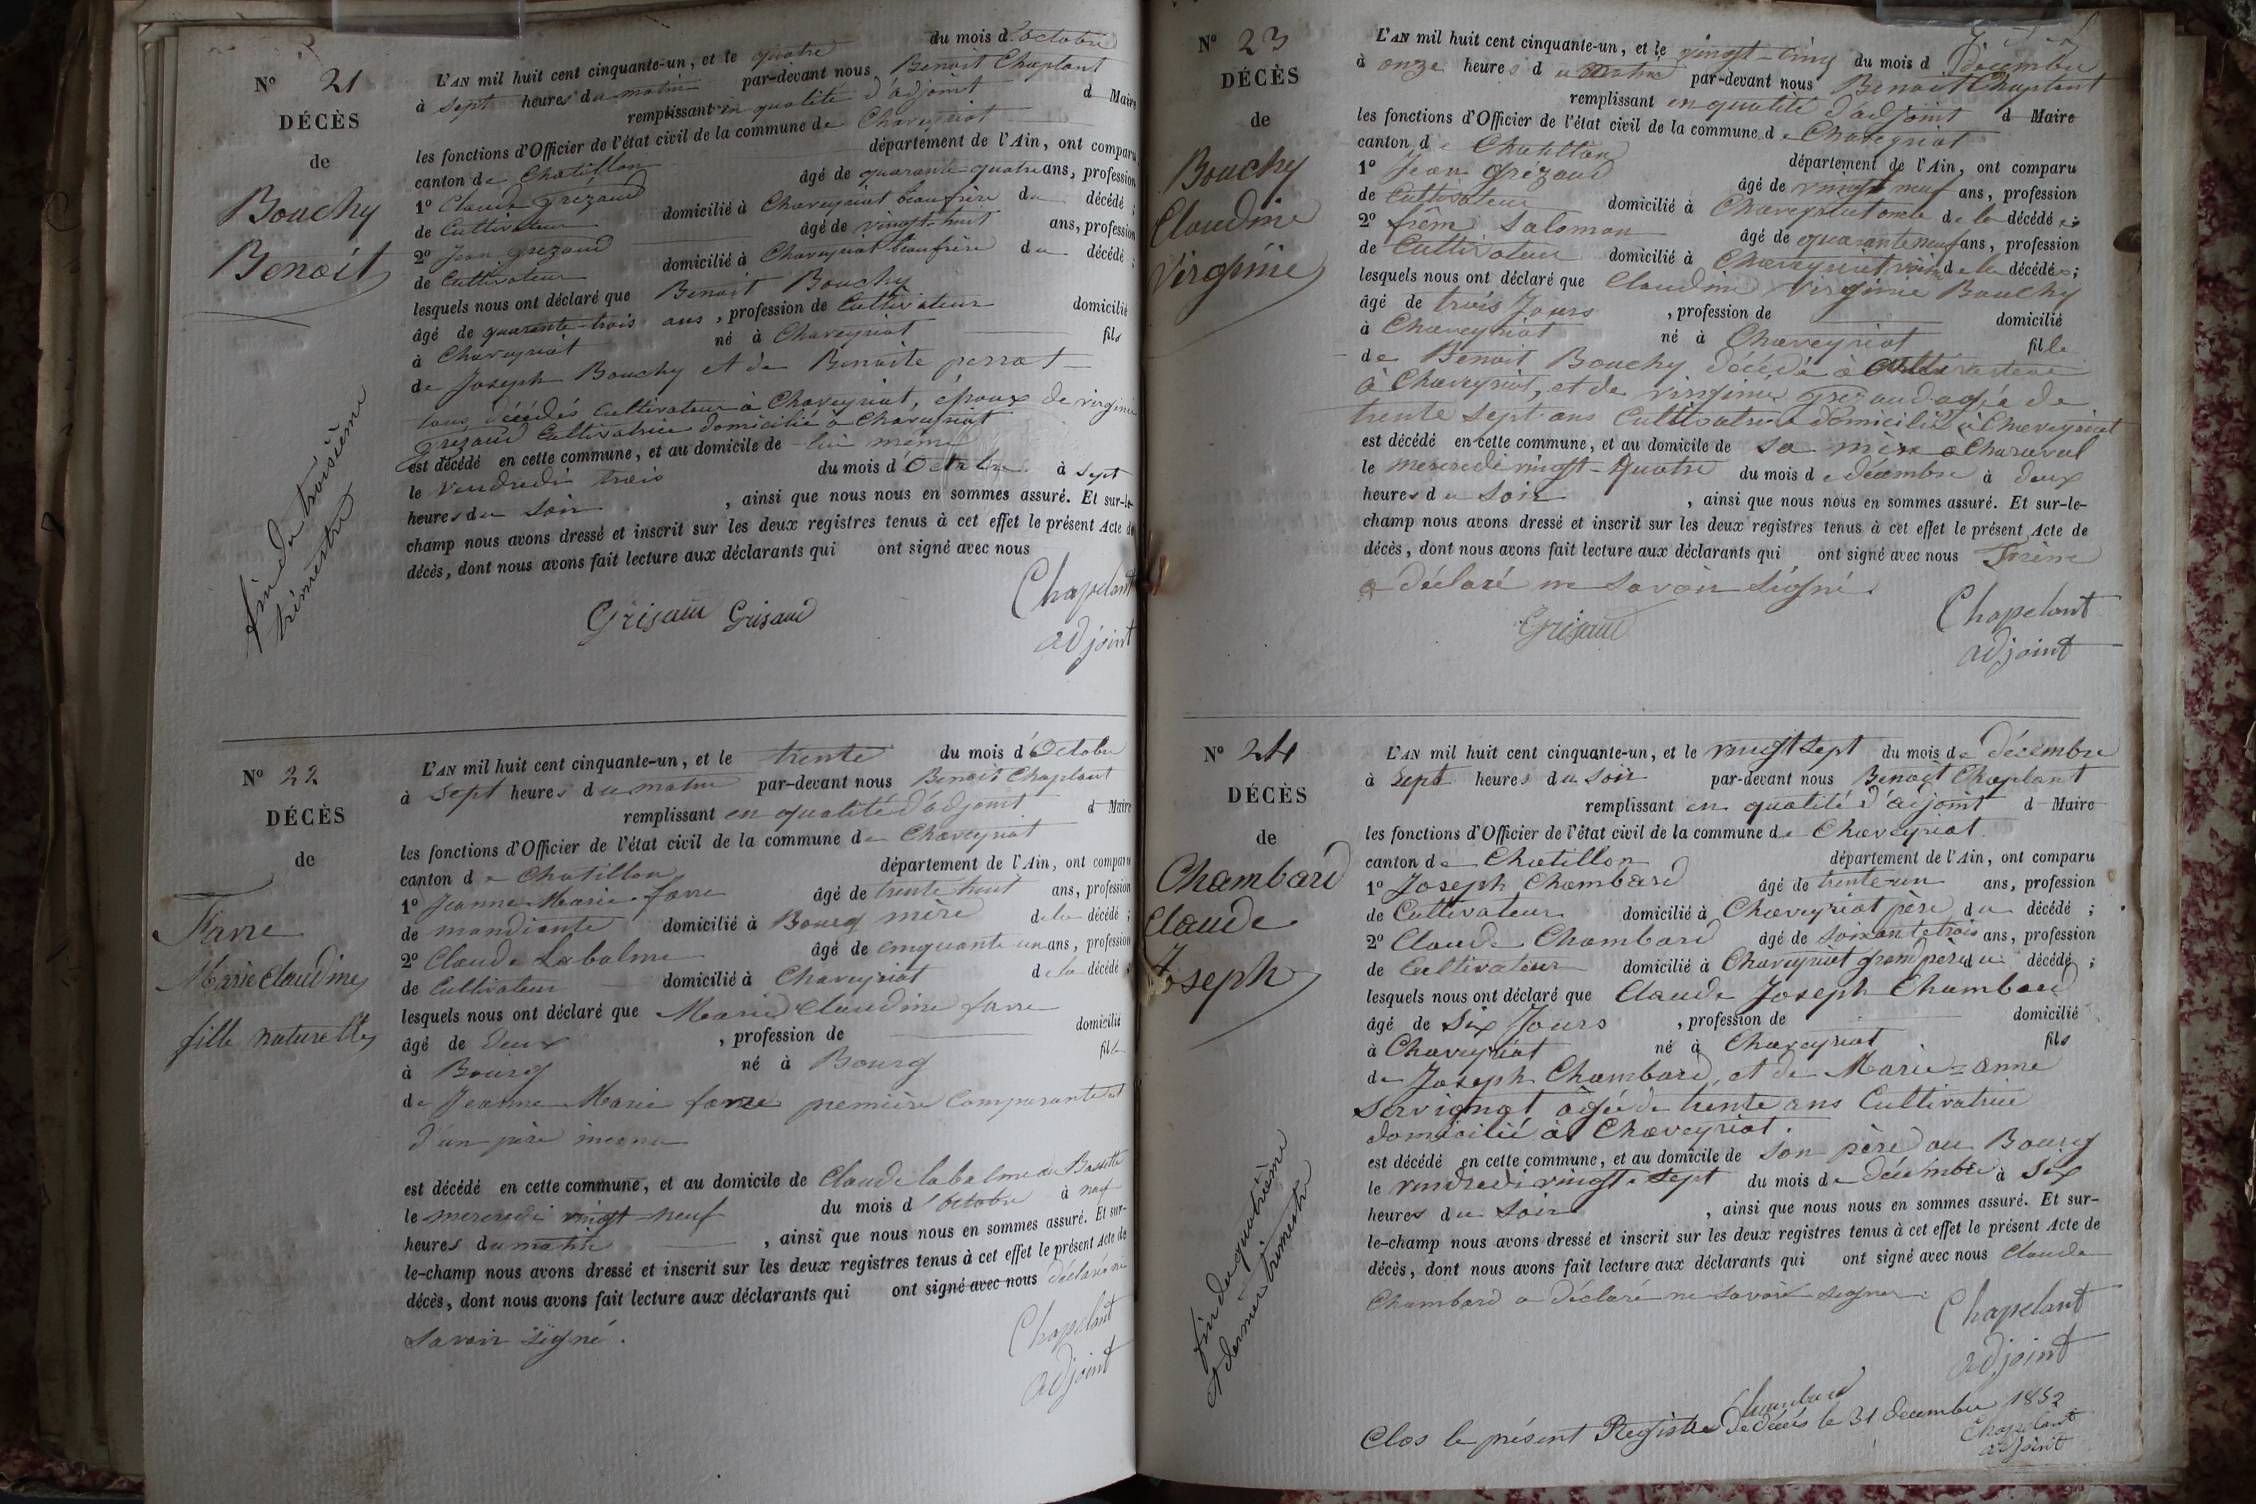 N° 21
DÉCÈS
de
Bouchy
Benoit
fin du troisième
trimestre
L'AN mil huit cent cinquante-un, et le quatre du mois d'octobre
à sept heures du matin par-devant nous Benoit Chaplant
remplissant en qualité d'adjoint d Maire
les fonctions d'Officier de l'état civil de la commune de Chaveyriat
canton de Chatillon département de l'Ain, ont comparu
1° Claude Grézaud âgé de quarante-quatre ans, profession
de Cultivateur domicilié à Chaveyriat beaufrère du décédé ;
2° Jean Grezaud âgé de vingt-huit ans, profession
de Cultivateur domicilié à Chaveyriat beaufrère du décédé ;
lesquels nous ont déclaré que Benoit Bouchy
âgé de quarante-trois ans, profession de Cultivateur domicilié
à Chaveyriat né à Chaveyriat fils
de Joseph Bouchy et de Benoite perrat
tous décédés Cultivateur à Chaveyriat, époux de virginie
Grézaud Cultivatrice domicilié à Chaveyriat
est décédé en cette commune, et au domicile de lui même
le vendredi trois du mois d'Octobre à sept
heures du soir, ainsi que nous nous en sommes assuré. Et sur-le-
champ nous avons dressé et inscrit sur les deux registres tenus à cet effet le présent Acte de
décès, dont nous avons fait lecture aux déclarants qui ont signé avec nous
Chapelant
Grisaud Grisaud
adjoint
N° 22
DÉCÈS
de
Farre
Marie Claudine
fille naturelle
L'AN mil huit cent cinquante-un, et le trente du mois d'Octobre
à sept heures du matin par-devant nous Benoit Chaplant
remplissant en qualité d'adjoint d Maire
les fonctions d'Officier de l'état civil de la commune de Chaveyriat
canton de Chatillon département de l'Ain, ont comparu
1° Jeanne Marie farre âgé de trente huit ans, profession
de mandiante domicilié à Bourg mère de la décédé ;
2° Claude Labalme âgé de cinquante un ans, profession
de Cultivateur domicilié à Chaveyriat de la décédé ;
lesquels nous ont déclaré que Marie Claudine farre
âgé de deux, profession de domicilié
à Bourg né à Bourg fille
de Jeanne Marie farre première Comparante et
d'un père inconu
est décédé en cette commune, et au domicile de Claude labalme du Bassette
le mercredi vingt-neuf du mois d'octobre à neuf
heures du matin, ainsi que nous nous en sommes assuré. Et sur-
le-champ nous avons dressé et inscrit sur les deux registres tenus à cet effet le présent Acte de
décès, dont nous avons fait lecture aux déclarants qui ont signé avec nous déclaré ne
savoir signé.
Chapelant
adjoint
N° 23
DÉCÈS
de
Bouchy
Claudine
Virginie
L'AN mil huit cent cinquante-un, et le vingt-cinq du mois d décembre
à onze heures du matin par-devant nous Benoit Chaplant
remplissant en qualité d'adjoint d Maire
les fonctions d'Officier de l'état civil de la commune de Chaveyriat
canton de Chatillon département de l'Ain, ont comparu
1° Jean Grézaud âgé de vingt neuf ans, profession
de Cultivateur domicilié à Chaveyriat oncle de la décédée ;
2° frême Salomon âgé de quarante neuf ans, profession
de Cultivateur domicilié à Chaveyriat voisin de la décédée ;
lesquels nous ont déclaré que Claudine Virginie Bouchy
âgé de trois Jours, profession de domicilié
à Chaveyriat né à Chaveyriat fille
de Benoit Bouchy décédé à
à Chaveyriat, et de virginie Grezaud agée de
trente sept ans Cultivatrice domicilié à Chaveyriat
est décédé en cette commune, et au domicile de sa mère a Charaval
le mercredi vingt-quatre du mois de décembre à deux
heures du soir, ainsi que nous nous en sommes assuré. Et sur-le-
champ nous avons dressé et inscrit sur les deux registres tenus à cet effet le présent Acte de
décès, dont nous avons fait lecture aux déclarants qui ont signé avec nous Frème
a déclaré ne savoir signé.
Chapelant
Grisaud
adjoint
N° 24
DÉCÈS
de
Chambard
Claude
Joseph
fin du quatrième
et dernier trimestre
L'AN mil huit cent cinquante-un, et le vingt sept du mois de décembre
à sept heures du soir par-devant nous Benoit Chaplant
remplissant en qualité d'adjoint d Maire
les fonctions d'Officier de l'état civil de la commune de Chaveyriat
canton de Chatillon département de l'Ain, ont comparu
1° Joseph Chambard âgé de trente-un ans, profession
de Cultivateur domicilié à Chaveyriat père du décédé ;
2° Claude Chambard âgé de soixante trois ans, profession
de Cultivateur domicilié à Chaveyriat grand père du décédé ;
lesquels nous ont déclaré que Claude Joseph Chambard
âgé de six Jours, profession de domicilié
à Chaveyriat né à Chaveyriat fils
de Joseph Chambard, et de Marie-anne
servignat agée de trente ans Cultivatrice
domicilié à Chaveyriat.
est décédé en cette commune, et au domicile de son père au Bourg
le vendredi vingt-sept du mois de décembre à six
heures du soir, ainsi que nous nous en sommes assuré. Et sur-
le-champ nous avons dressé et inscrit sur les deux registres tenus à cet effet le présent Acte de
décès, dont nous avons fait lecture aux déclarants qui ont signé avec nous Claude
Chambard a déclaré ne savoir signer.
Chapelant
adjoint
Chambard
Clos le présent Registre de décès le 31 decembre 1852
Chapelant
adjoint